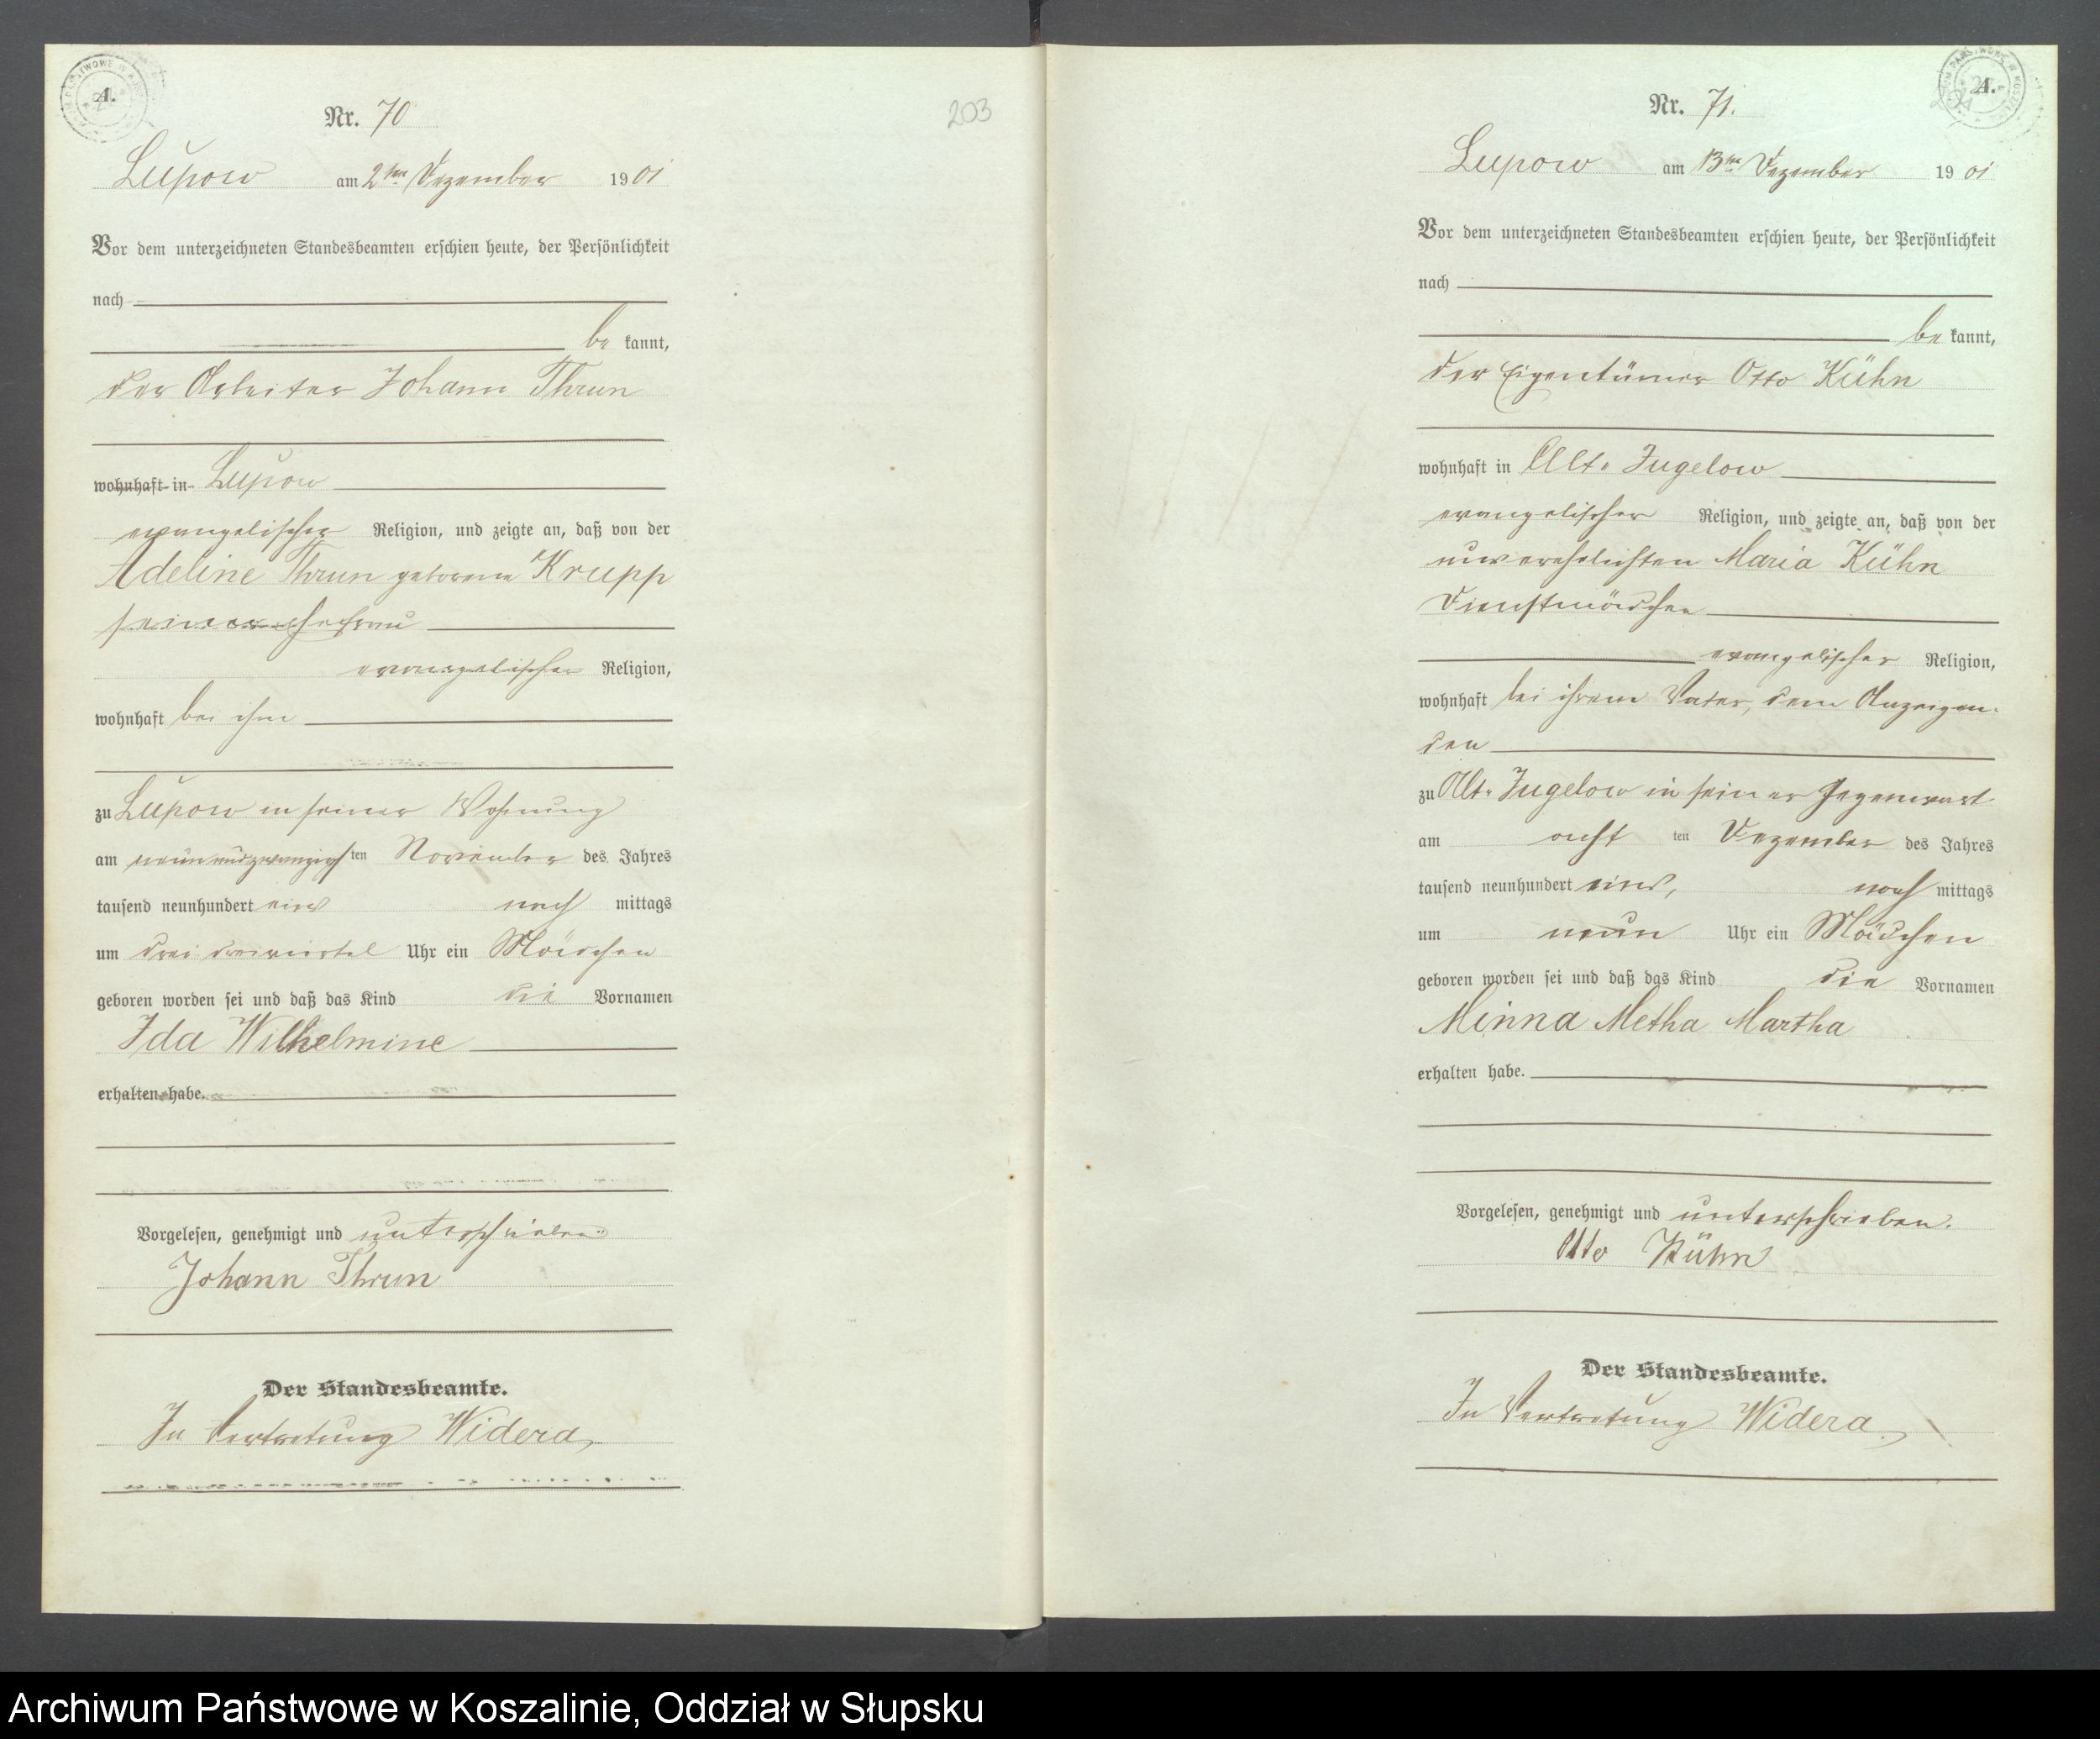 A.
Nr. 70
Lupow am 2ten Dezember 1901
Vor dem unterzeichneten Standesbeamten erschien heute, der Persönlichkeit
nach
be kannt,
der Arbeiter Johann Thrun
wohnhaft in Lupow
evangelischer Religion, und zeigte an, daß von der
Adeline Thrun geborene Krupp
seiner Ehefrau
evangelischer Religion,
wohnhaft bei ihm
zu Lupow in seiner Wohnung
am neunundzwanzigsten November des Jahres
tausend neunhundert eins nach mittags
um drei dreiviertel Uhr ein Mädchen
geboren worden sei und daß das Kind die Vornamen
Ida Wilhelmine
erhalten habe.
Vorgelesen, genehmigt und unterschrieben
Johann Thrun
Der Standesbeamte.
In Vertretung Widera
203
A.
Nr. 71.
Lupow am 13ten Dezember 1901
Vor dem unterzeichneten Standesbeamten erschien heute, der Persönlichkeit
nach
be kannt,
der Eigentümer Otto Kühn
wohnhaft in Alt-Jugelow
evangelischer Religion, und zeigte an, daß von der
unverehelichten Maria Kühn
Dienstmädchen
evangelischer Religion,
wohnhaft bei ihrem Vater, dem Anzeigen-
den
zu Alt-Jugelow in seiner Gegenwart
am acht ten Dezember des Jahres
tausend neunhundert eins, nach mittags
um neun Uhr ein Mädchen
geboren worden sei und daß das Kind die Vornamen
Minna Metha Martha
erhalten habe.
Vorgelesen, genehmigt und unterschrieben.
Otto Kühn
Der Standesbeamte.
In Vertretung Widera
Archiwum Państwowe w Koszalinie, Oddział w Słupsku